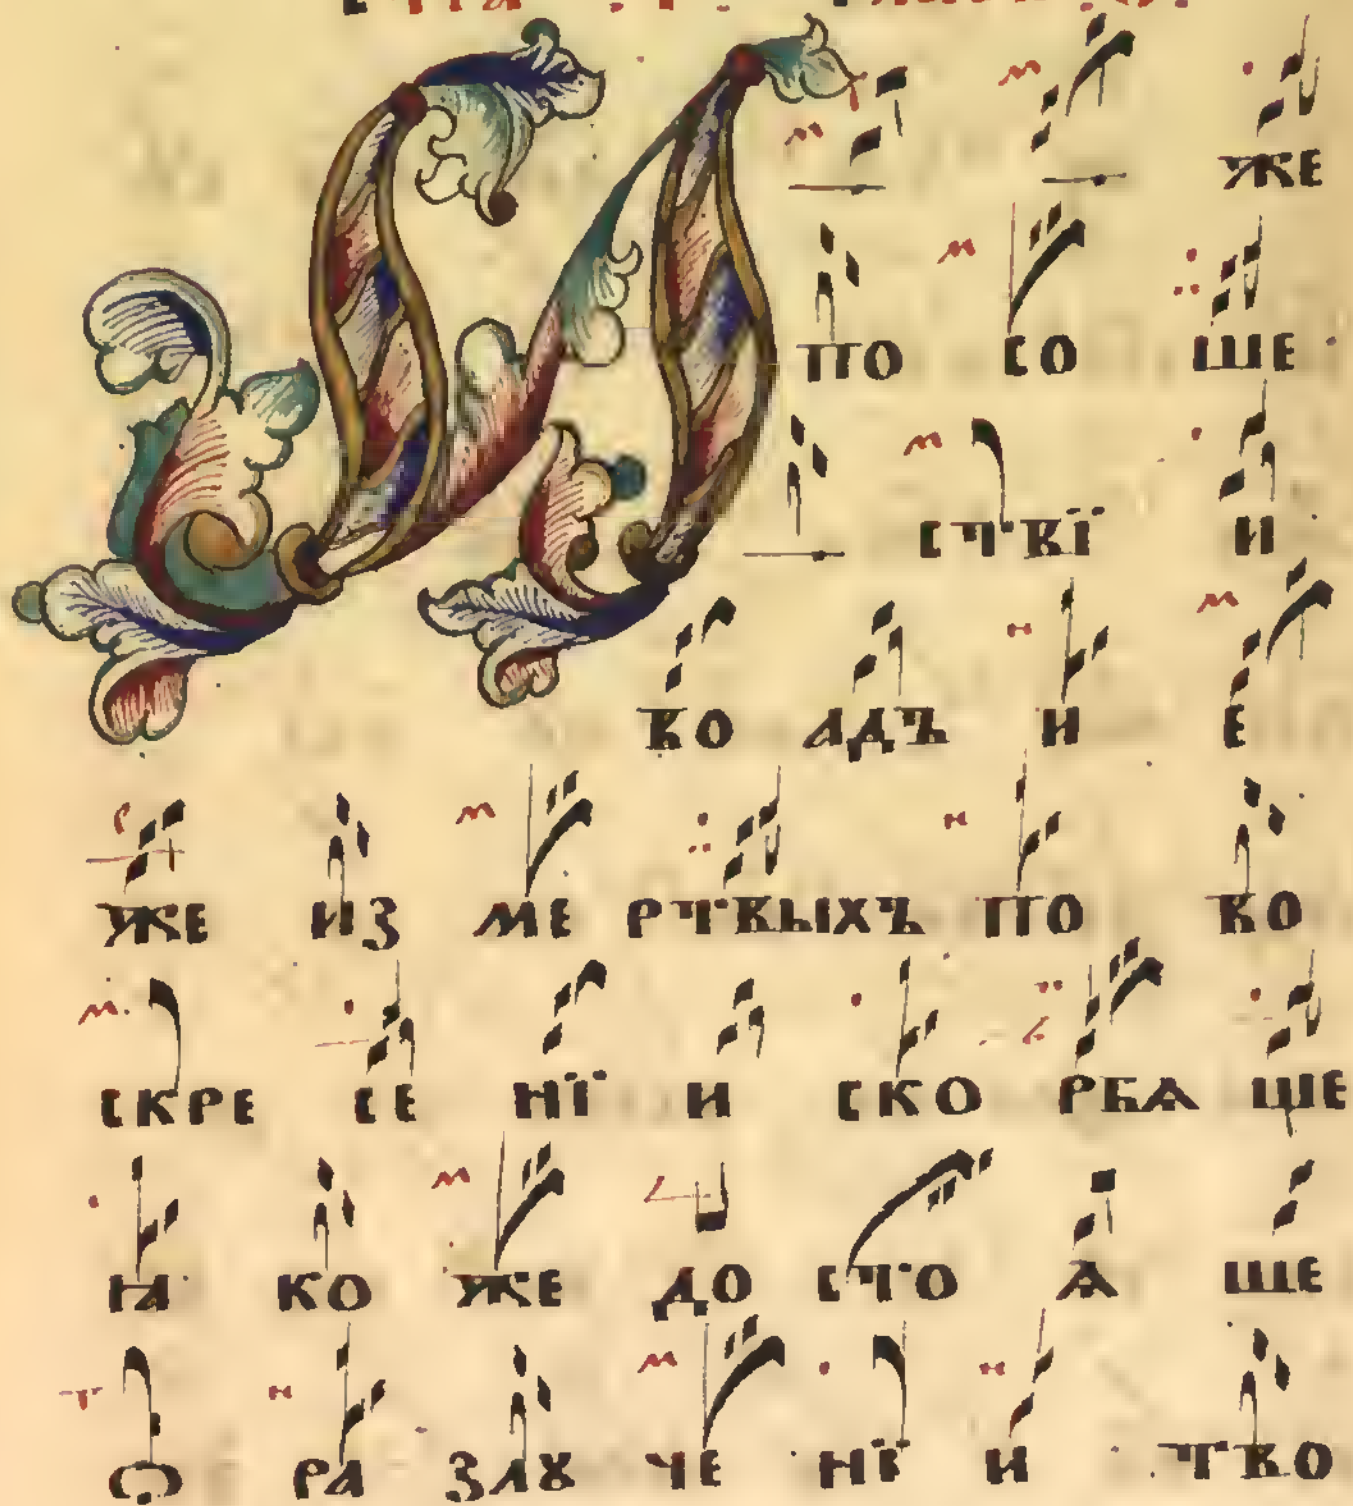 И ЖЕ
ПО СО ШЕ
СТВЇ И
ВО АДЪ И Е
ЖЕ ИЗ МЕ РТВЫХЪ ПО ВО
СКРЕ СЕ НЇ И СКО РБѦ ШЕ
ꙖКО ЖЕ ДО СТО Ѧ ШЕ
Ѡ РА ЗЛꙊ ЧЕ НЇ И ТВО